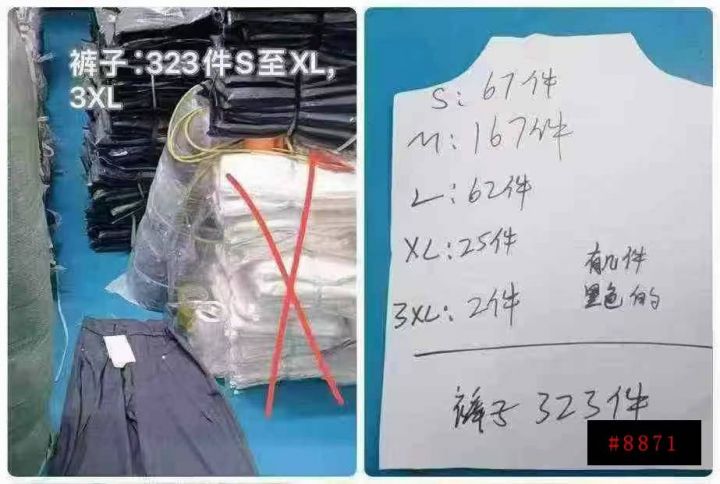 裤子：323件S至XL,
3XL
S：67件
M：167件
L：62件
XL：25件
有几件
黑色的
3XL：2件
裤子 323件
#8871